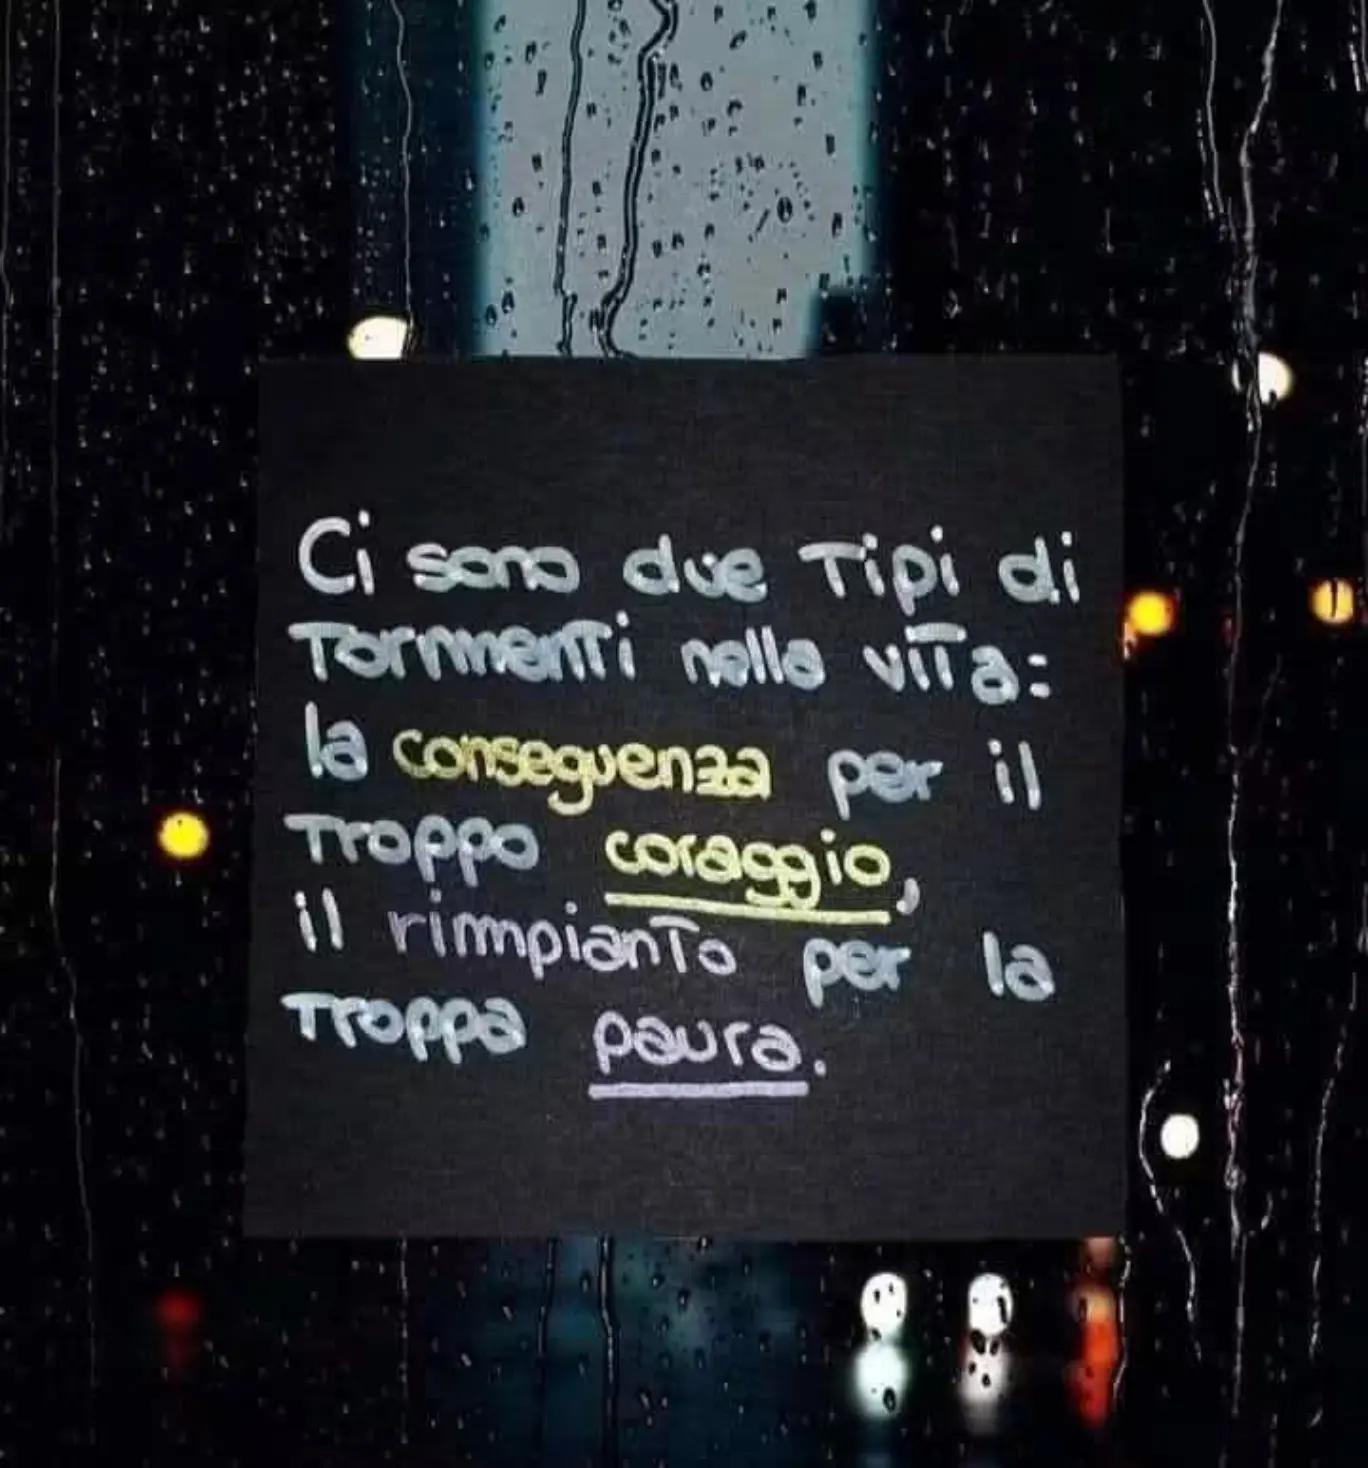 Ci sono due Tipi di
TormenTi nella viTa:
la conseguenza per il
Troppo coraggio,
il rimpianTo per la
Troppa paura.